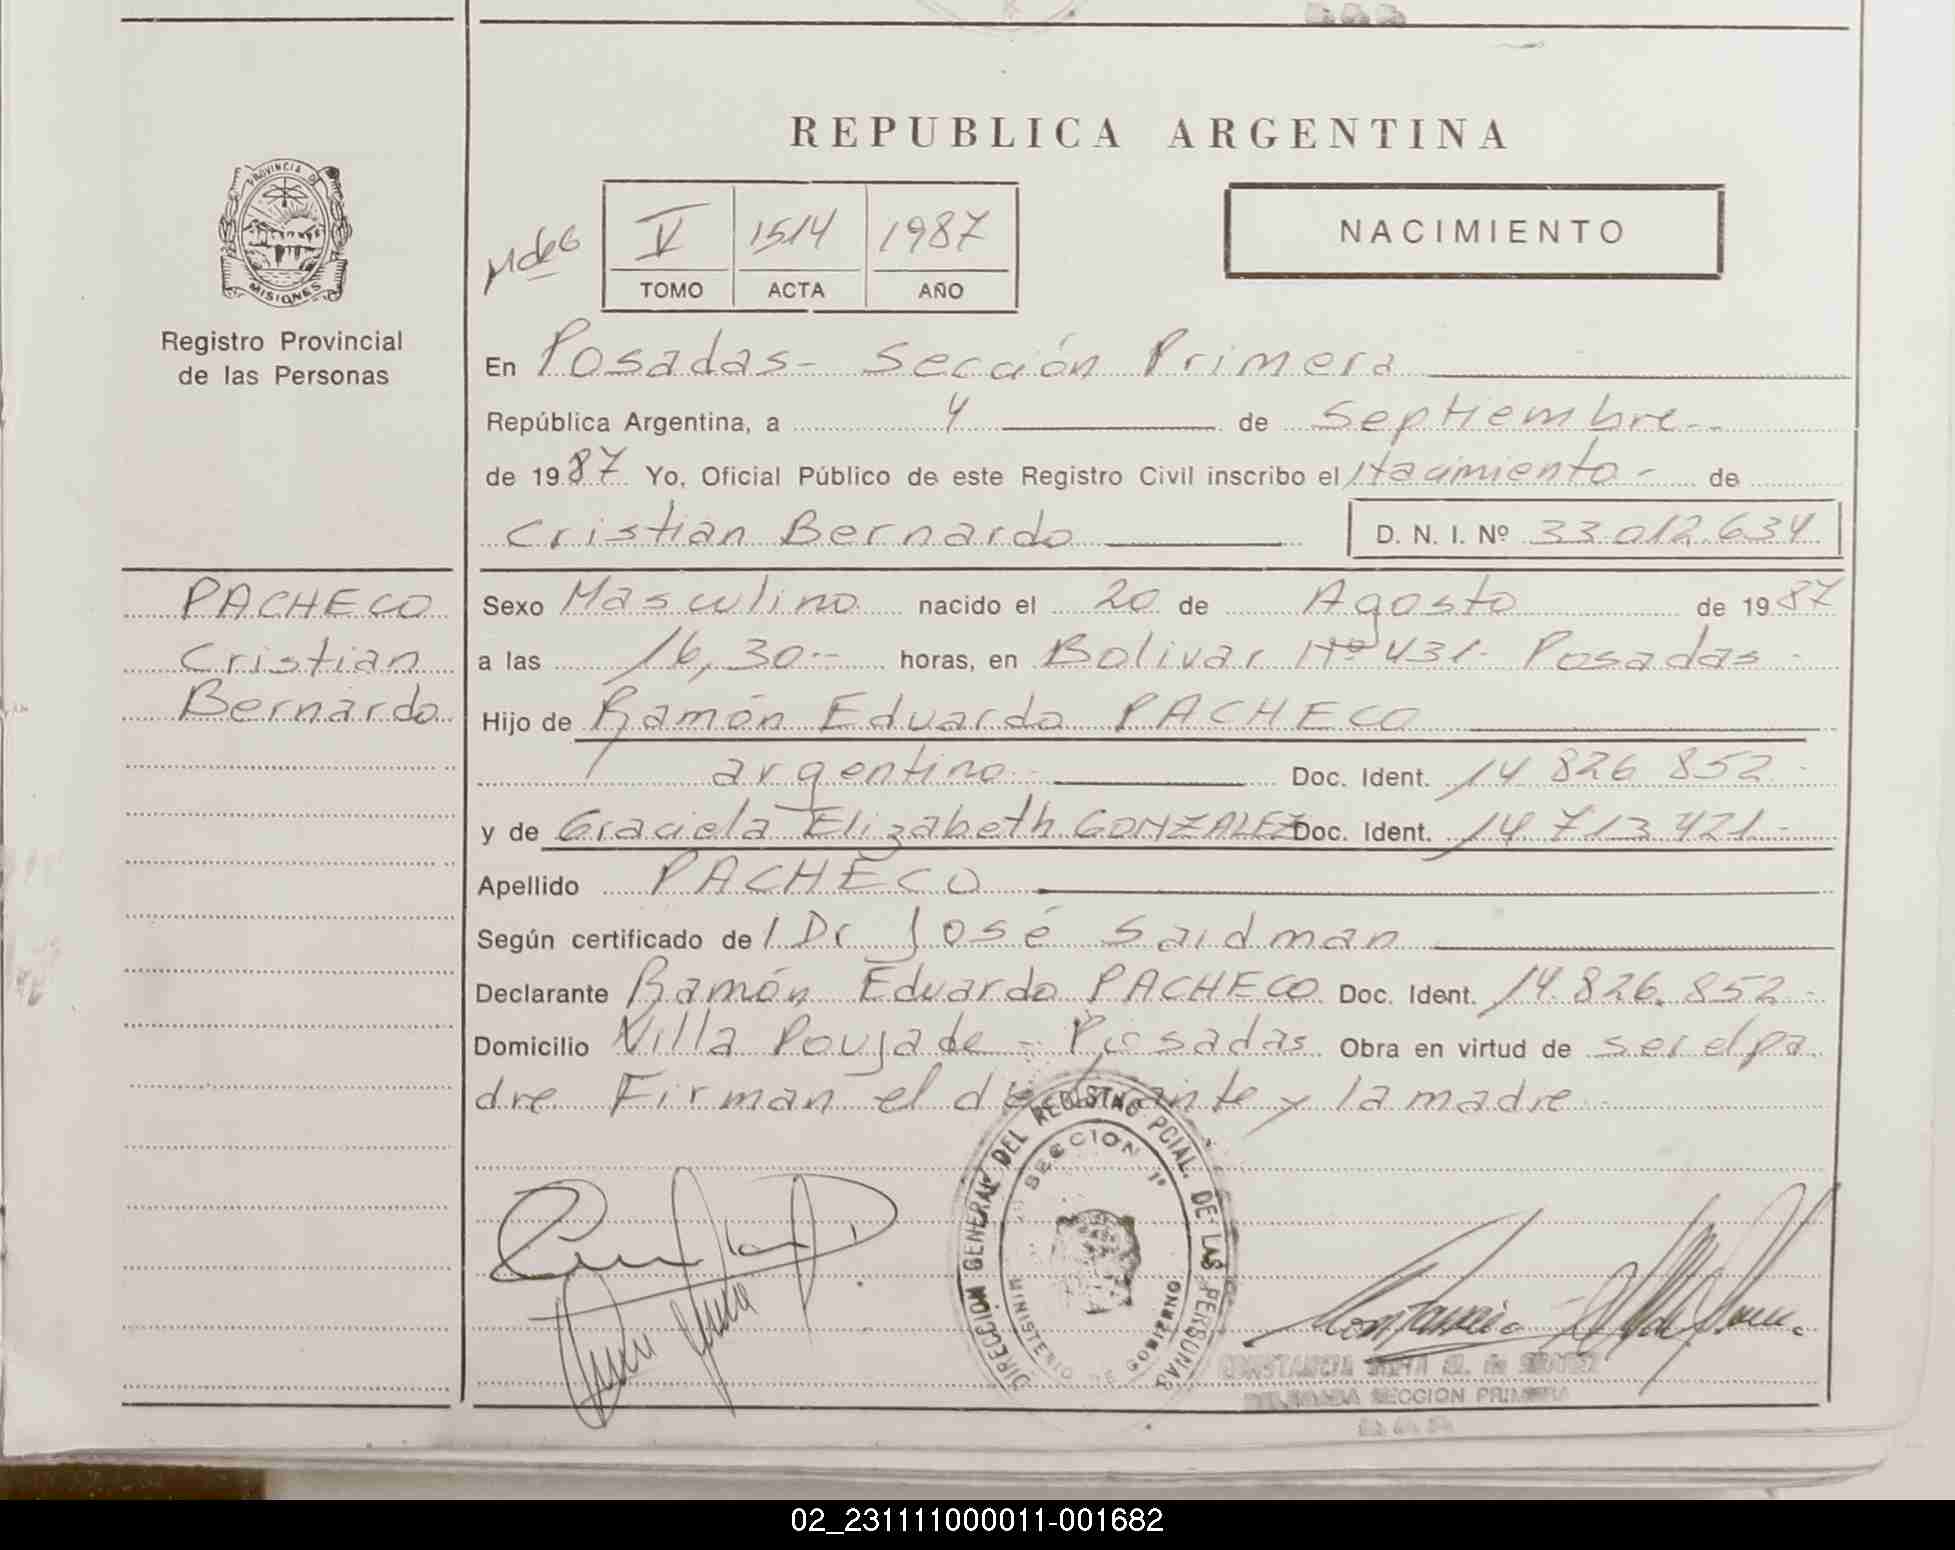 REPUBLICA ARGENTINA
PROVINCIA DE
MISIONES
Registro Provincial
de las Personas
V 1514 1987
TOMO ACTA AÑO
NACIMIENTO
En Posadas- Sección Primera
República Argentina, a 4 de Septiembre
de 1987 Yo, Oficial Público de este Registro Civil inscribo el Nacimiento - de
Cristian Bernardo D. N. I. Nº 33.012.634
PACHECO
Cristian
Bernardo
Sexo Masculino nacido el 20 de Agosto de 1987
a las 16,30-- horas, en Bolivar Nº 431- Posadas -
Hijo de Ramón Eduardo PACHECO
argentino- Doc. Ident. 14.826.852-
y de Graciela Elizabeth GONZALEZ Doc. Ident. 14.713.421-
Apellido PACHECO
Según certificado de l Dr José Saidman
Declarante Ramón Eduardo PACHECO Doc. Ident. 14.826.852-
Domicilio Villa Poujade - Posadas Obra en virtud de ser el pa
dre Firman el declarante y la madre
DIRECCION GENERAL DEL REGISTRO PCIAL. DE LAS PERSONAS
SECCION 1ª
MINISTERIO DE GOBIERNO
SECCION PRIMERA
02_231111000011-001682